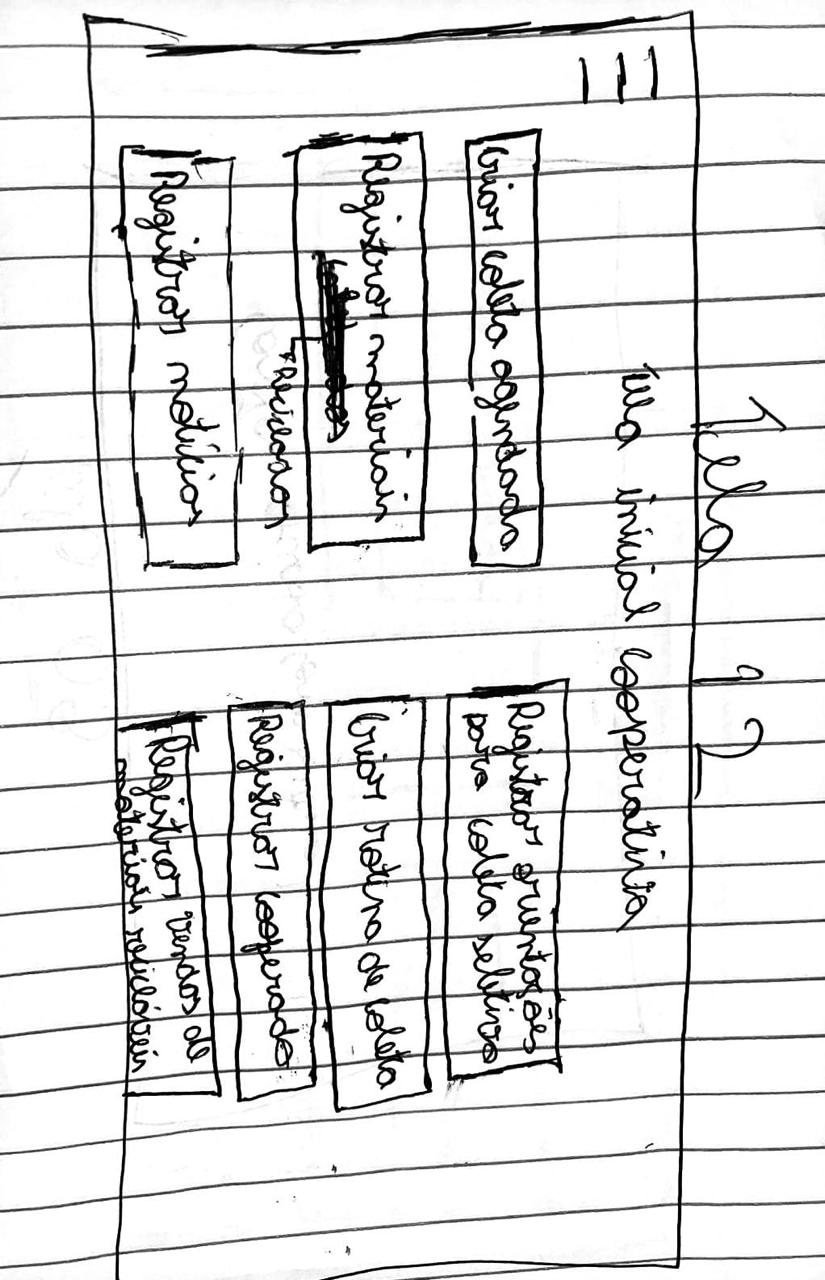 Tela 12
Tela inicial cooperativa
Criar coleta agendada
Registrar materiais
Reciclados
Registrar notícias
Registrar orientações
para coleta seletiva
Criar rotina de coleta
Registrar cooperado
Registrar vendas de
materiais recicláveis